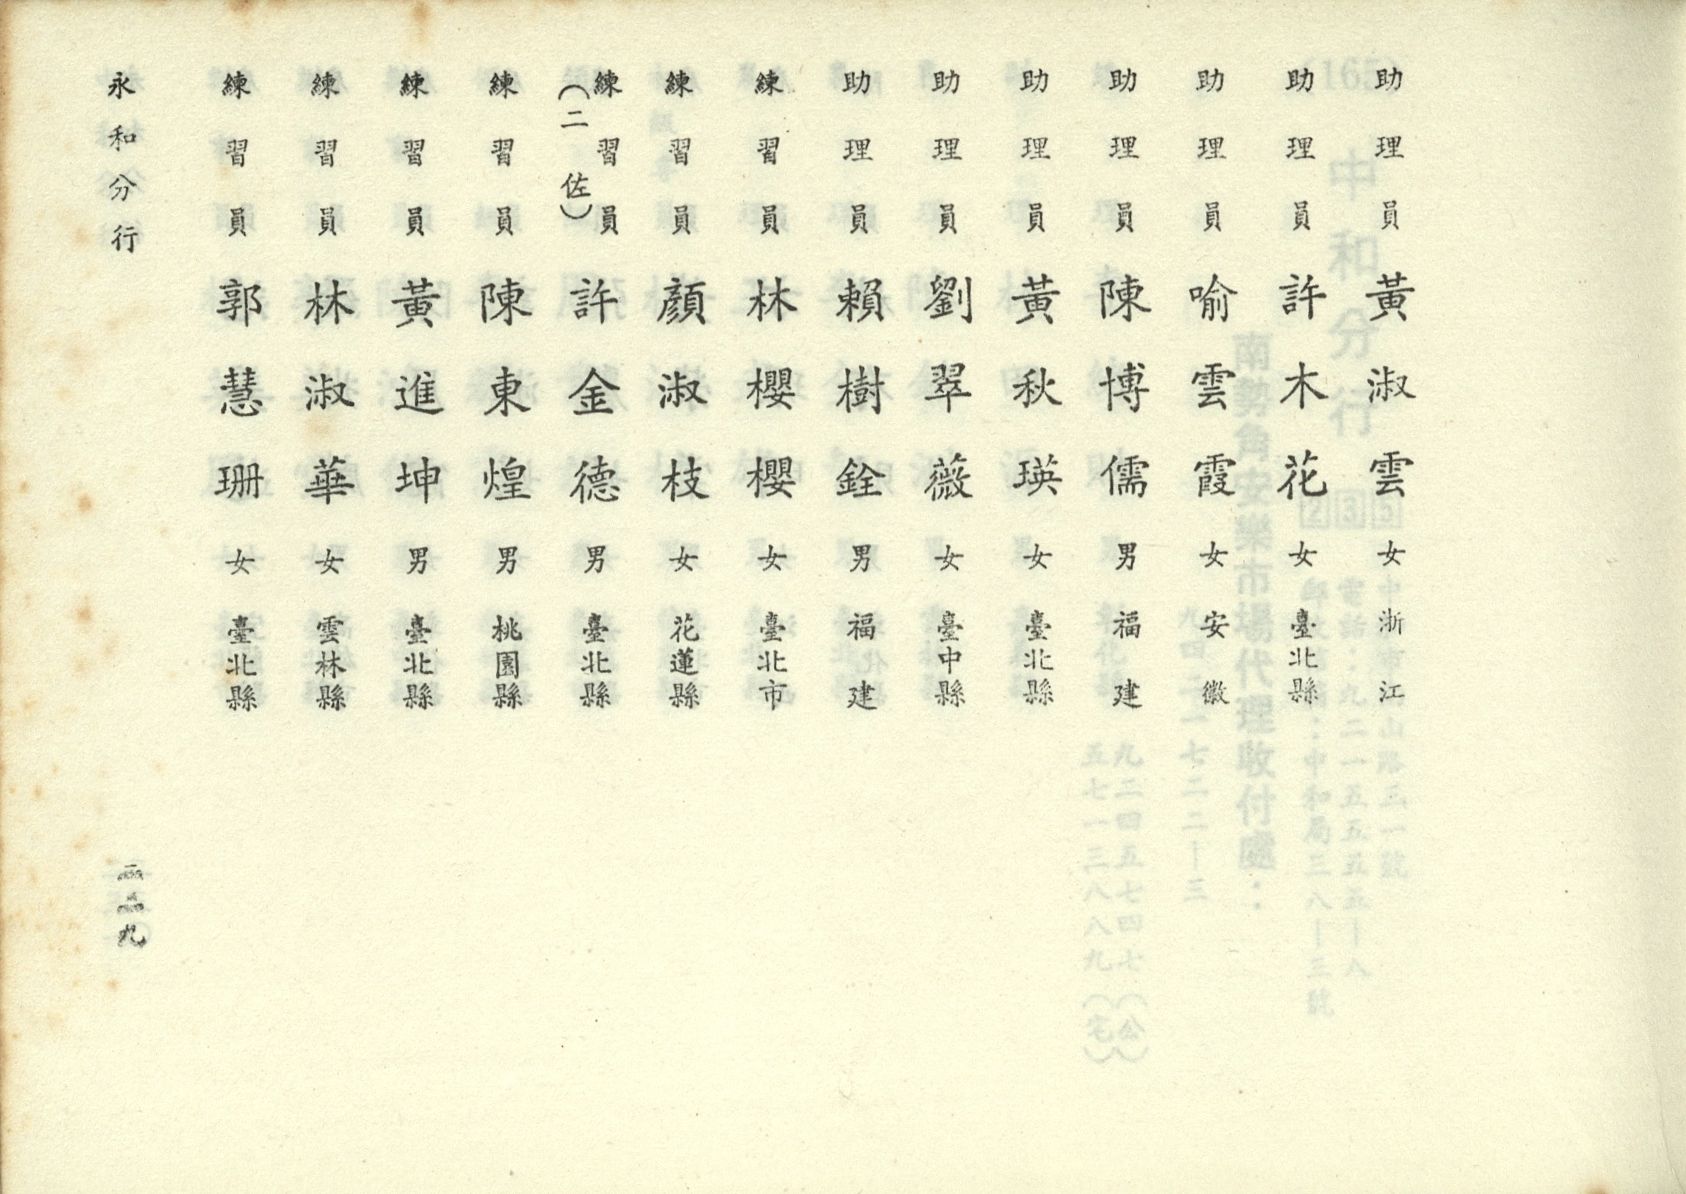 助理員 黃淑雲 女 浙江
助理員 許木花 女 臺北縣
助理員 喻雲霞 女 安徽
助理員 陳博儒 男 福建
助理員 黃秋瑛 女 臺北縣
助理員 劉翠薇 女 臺中縣
助理員 賴樹銓 男 福建
練習員 林櫻櫻 女 臺北市
練習員 顏淑枝 女 花蓮縣
練習員(二佐) 許金德 男 臺北縣
練習員 陳東煌 男 桃園縣
練習員 黃進坤 男 臺北縣
練習員 林淑華 女 雲林縣
練習員 郭慧珊 女 臺北縣
永和分行
二二九